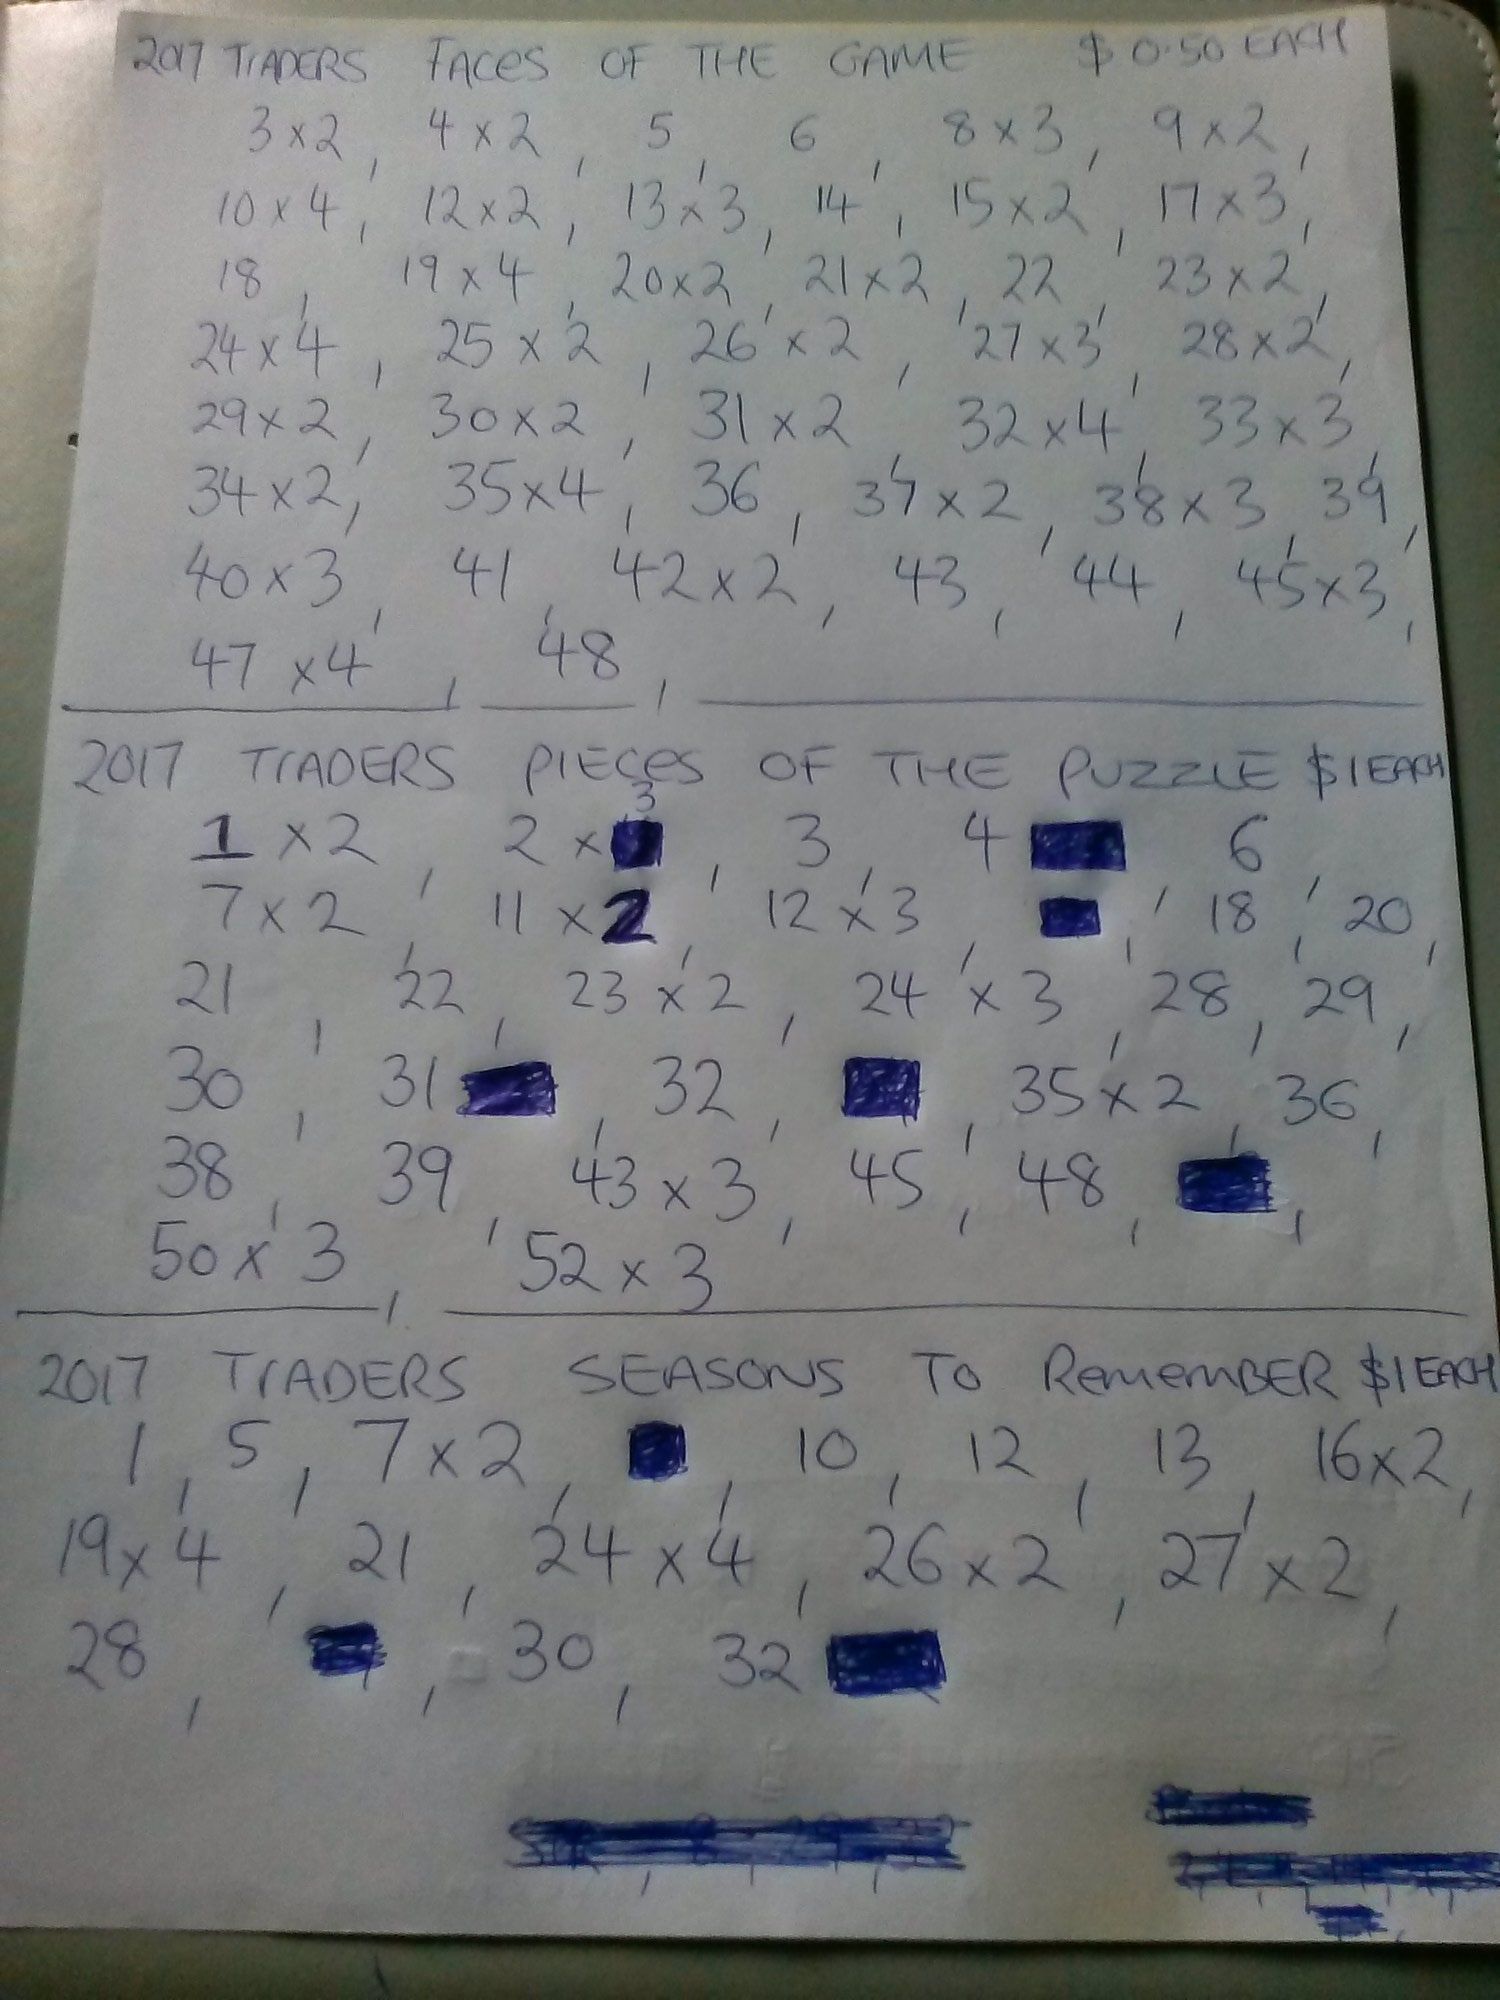 2017 TRADERS FACES OF THE GAME $0.50 EACH
3 x 2, 4 x 2, 5, 6, 8 x 3, 9 x 2,
10 x 4, 12 x 2, 13 x 3, 14, 15 x 2, 17 x 3,
18, 19 x 4, 20 x 2, 21 x 2, 22, 23 x 2,
24 x 4, 25 x 2, 26 x 2, 27 x 3, 28 x 2,
29 x 2, 30 x 2, 31 x 2, 32 x 4, 33 x 3,
34 x 2, 35 x 4, 36, 37 x 2, 38 x 3, 39,
40 x 3, 41, 42 x 2, 43, 44, 45 x 3,
47 x 4, 48,
2017 TRADERS PIECES OF THE PUZZLE $1 EACH
1 x 2, 2 x 3, 3, 4 6
7 x 2, 11 x 2, 12 x 3, , 18, 20,
21, 22, 23 x 2, 24 x 3, 28, 29,
30, 31 , 32, , 35 x 2, 36,
38, 39, 43 x 3, 45, 48, ,
50 x 3, 52 x 3
2017 TRADERS SEASONS TO REMEMBER $1 EACH
1, 5, 7 x 2, , 10, 12, 13, 16 x 2,
19 x 4, 21, 24 x 4, 26 x 2, 27 x 2,
28, , 30, 32